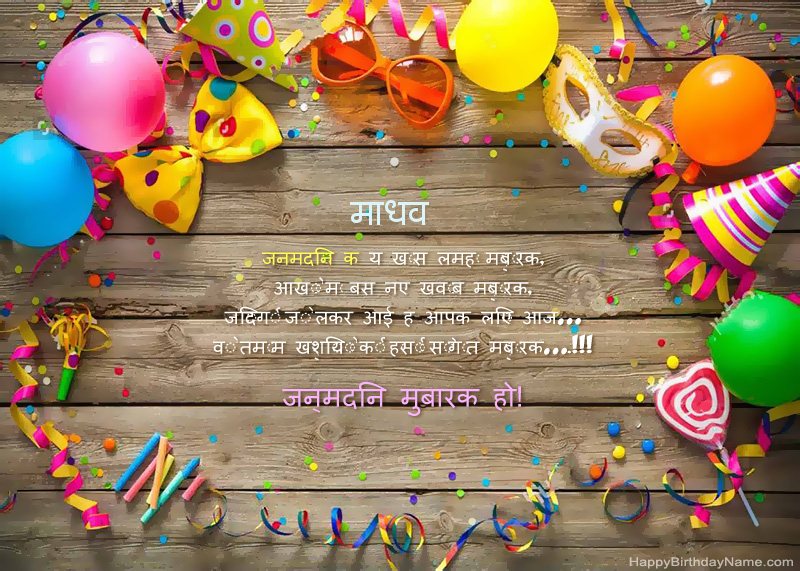 माधव
जनमदिन क य खास लमहा मबारक,
आखों में बस नए खवाब मबारक,
जिदगी जो लेकर आई ह आपक लिए आज...
वो तमाम खशियों की हसी सौगात मबारक...!!!
जन्मदिन मुबारक हो!
HappyBirthdayName.com